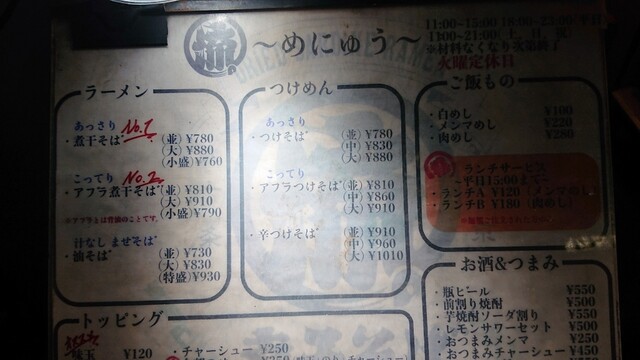 〜めにゅう〜
11:00~15:00 18:00~23:00 平日
11:00~21:00(土、日、祝)
※材料なくなり次第終了
火曜定休日
ラーメン
あっさり No.1
・煮干そば (並)¥780
(大)¥880
(小盛)¥760
こってり No.2
・アブラ煮干そば (並)¥810
(大)¥910
(小盛)¥790
※アブラとは背油のことです。
汁なし まぜそば
・油そば (並)¥730
(大)¥830
(特盛)¥930
つけめん
あっさり
・つけそば (並)¥780
(中)¥830
(大)¥880
こってり
・アブラつけそば (並)¥810
(中)¥860
(大)¥910
・辛つけそば (並)¥910
(中)¥960
(大)¥1010
ご飯もの
・白めし ¥100
・メンマめし ¥220
・肉めし ¥280
ランチサービス
〜平日15:00まで〜
・ランチA ¥120(メンマめし)
・ランチB ¥180(肉めし)
お酒&つまみ
・瓶ビール ¥550
・前割り焼酎 ¥500
・芋焼酎ソーダ割り ¥550
・レモンサワーセット ¥500
・おつまみメンマ ¥300
・おつまみチャーシュー ¥450
トッピング
味玉 ¥120
・チャーシュー ¥250